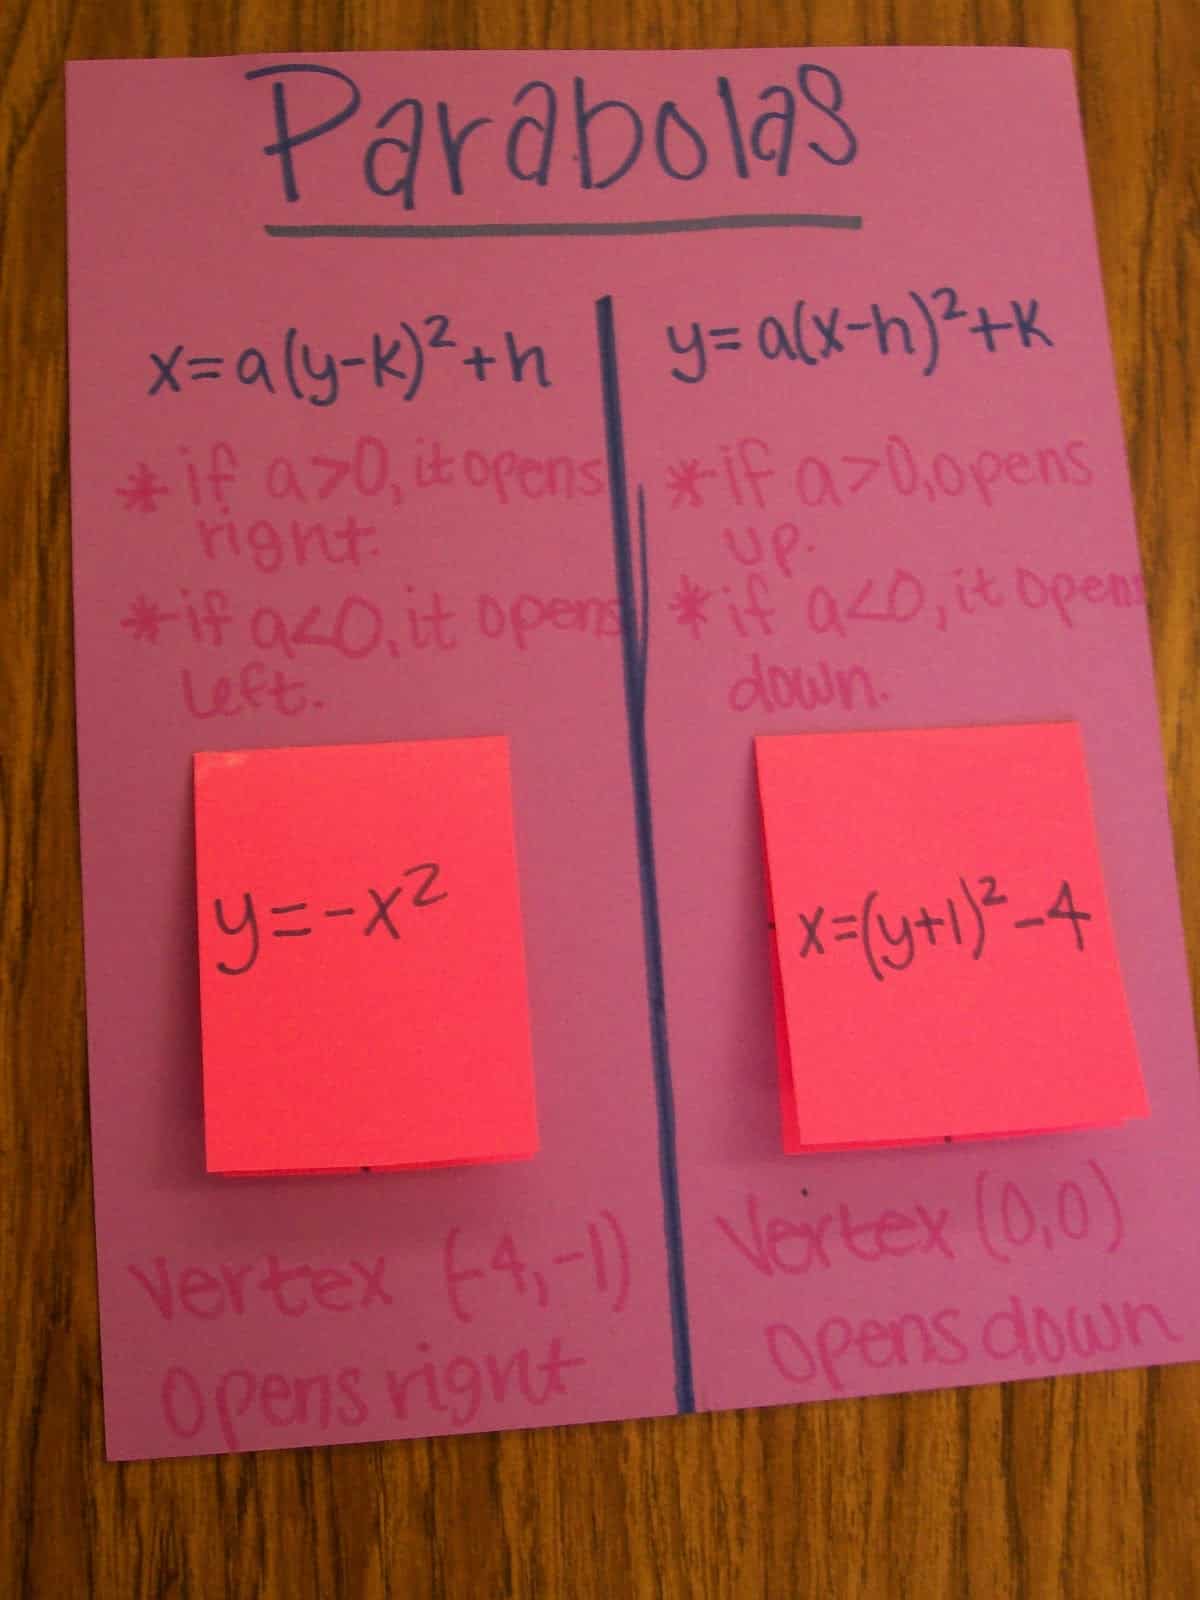 Parabolas
x=a(y-k)²+h
* if a>0, it opens
right.
* if a<0, it opens
left.
y=-x²
Vertex (-4,-1)
Opens right
y=a(x-h)²+k
* if a>0, opens
up.
* if a<0, it opens
down.
x=(y+1)²-4
Vertex (0,0)
opens down